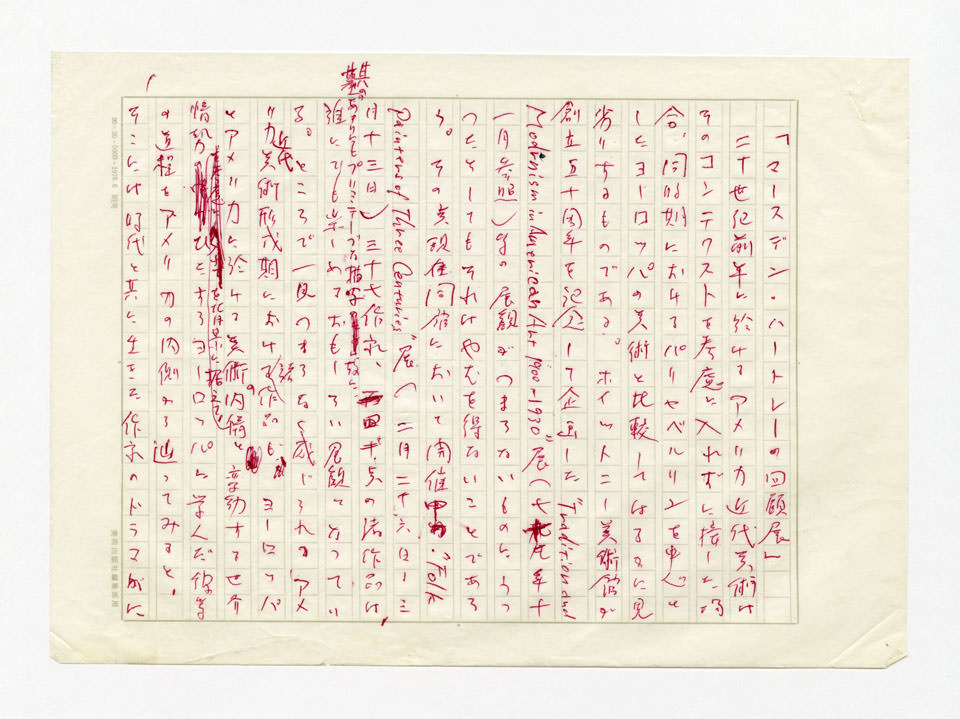 「マースデン・ハートレーの回顧展」
二十世紀前半に於けるアメリカ近代美術は
そのコンテクストを考慮に入れずに接した場
合、同時期におけるパリやベルリンを中心と
したヨーロッパの美術と比較してはるかに見
劣りするものである。ホイットニー美術館が
創立五十周年を記念して企画した "Tradition and
Modernism in American Art 1900-1930" 展(七九年十
一月参照)等の展観がつまらないものにうつ
ったとしてもそれはやむを得ないことであろ
う。その点現在同館において開催中の "Folk
Painters of Three Centuries" 展(二月二十六日ー三
月十三日)三十七作家、点の諸作品は、
其のあまりにもプリミティーブな描写故に
誰にでも楽しめておもしろい展観となってい
る。ところで一見つまらなく感じられるアメ
リカ近代美術形成期における諸作品も、ヨーロッパ
とアメリカに於ける美術の内情と、変動する世界
情勢を背景に据えてひとまずヨーロッパに学んだ作家
の道程をアメリカの内側から辿ってみると、
そこには時代と共に生きた作家のドラマがに
20×20=0000・1978.6
美術出版社編集部用